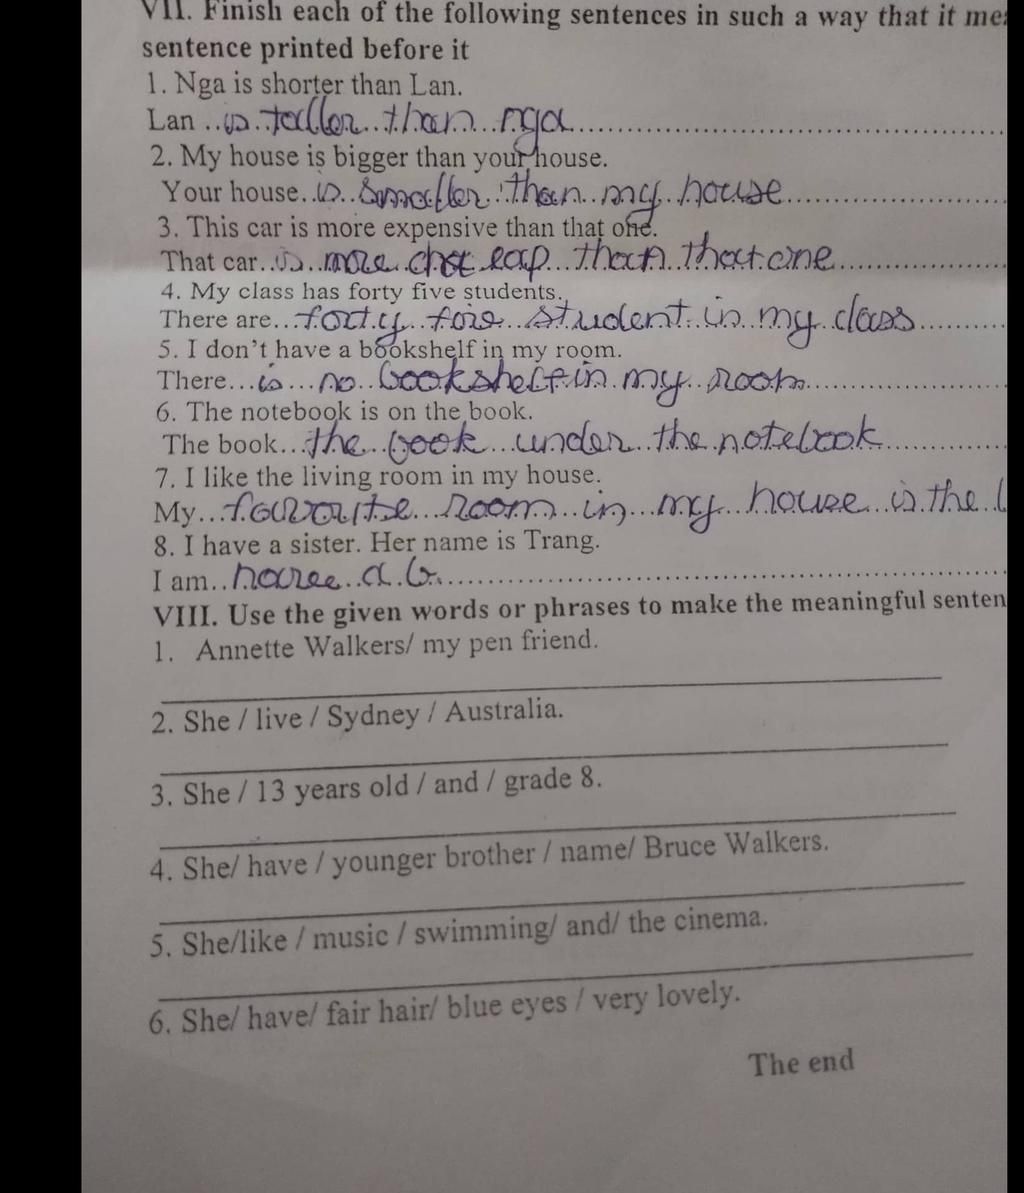 VII. Finish each of the following sentences in such a way that it mea
sentence printed before it
1. Nga is shorter than Lan.
Lan ..is..taller..than...nga..............................
2. My house is bigger than your house.
Your house..is..smaller..than..my..house..................
3. This car is more expensive than that one.
That car..is..more..cheap...than..that.one...............
4. My class has forty five students.
There are...forty..five...student..in..my..class..........
5. I don't have a bookshelf in my room.
There...is...no..bookshelf.in.my..room....................
6. The notebook is on the book.
The book...the..book...under..the.notebook...........
7. I like the living room in my house.
My...favourite...room...in...my..house..is.the
8. I have a sister. Her name is Trang.
I am.....a.......................................................
VIII. Use the given words or phrases to make the meaningful senten
1. Annette Walkers/ my pen friend.
2. She / live / Sydney / Australia.
3. She / 13 years old / and / grade 8.
4. She/ have / younger brother / name/ Bruce Walkers.
5. She/like / music / swimming/ and/ the cinema.
6. She/ have/ fair hair/ blue eyes / very lovely.
The end